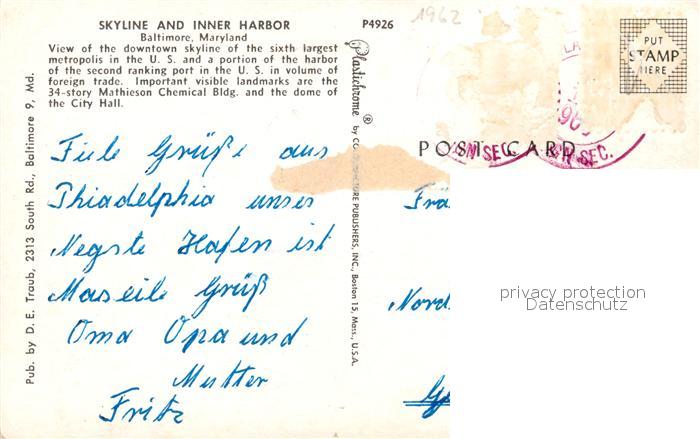 SKYLINE AND INNER HARBOR
Baltimore, Maryland
View of the downtown skyline of the sixth largest
metropolis in the U. S. and a portion of the harbor
of the second ranking port in the U. S. in volume of
foreign trade. Important visible landmarks are the
34-story Mathieson Chemical Bldg. and the dome of
the City Hall.
P4926
1962
PUT
STAMP
HERE
POST CARD
SEC.
SEC.
Fiele Grüße aus
Phiadelphia unser
Negste Hafen ist
Maseile Grüß
Oma Opa und
Mutter
Fritz
Frä
Nord
privacy protection
Datenschutz
Pub. by D. E. Traub, 2313 South Rd., Baltimore 9, Md.
Plastichrome ® by PUBLISHERS, INC., Boston 15, Mass., U.S.A.